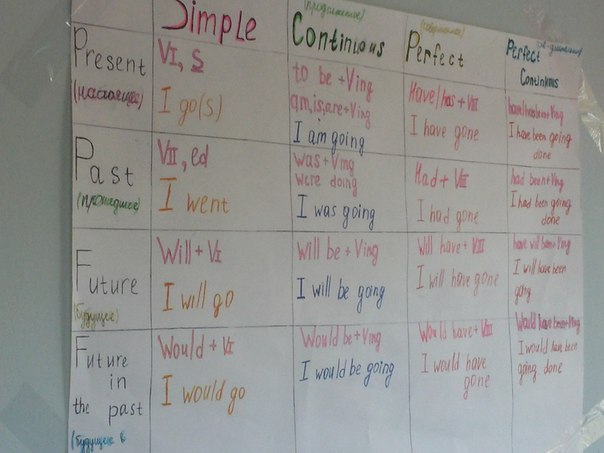 Simple
(продолженное)
Continious
Perfect
Perfect
Continious
Present
(настоящее)
VI, S
I go(s)
to be + Ving
am, is, are + Ving
I am going
Have/has + VIII
I have gone
have/has been + Ving
I have been going
done
Past
(прошедшее)
VII, ed
I went
was + Ving
were doing
I was going
Had + VIII
I had gone
had been + Ving
I had been going
done
Future
(будущее)
Will + VI
I will go
will be + Ving
I will be going
Will have + VIII
I will have gone
have will been + Ving
I will have been
going
Future
in
the past
(будущее в
Would + VI
I would go
Would be + Ving
I would be going
Would have + VIII
I would have
gone
Would have been + Ving
I would have been
going done